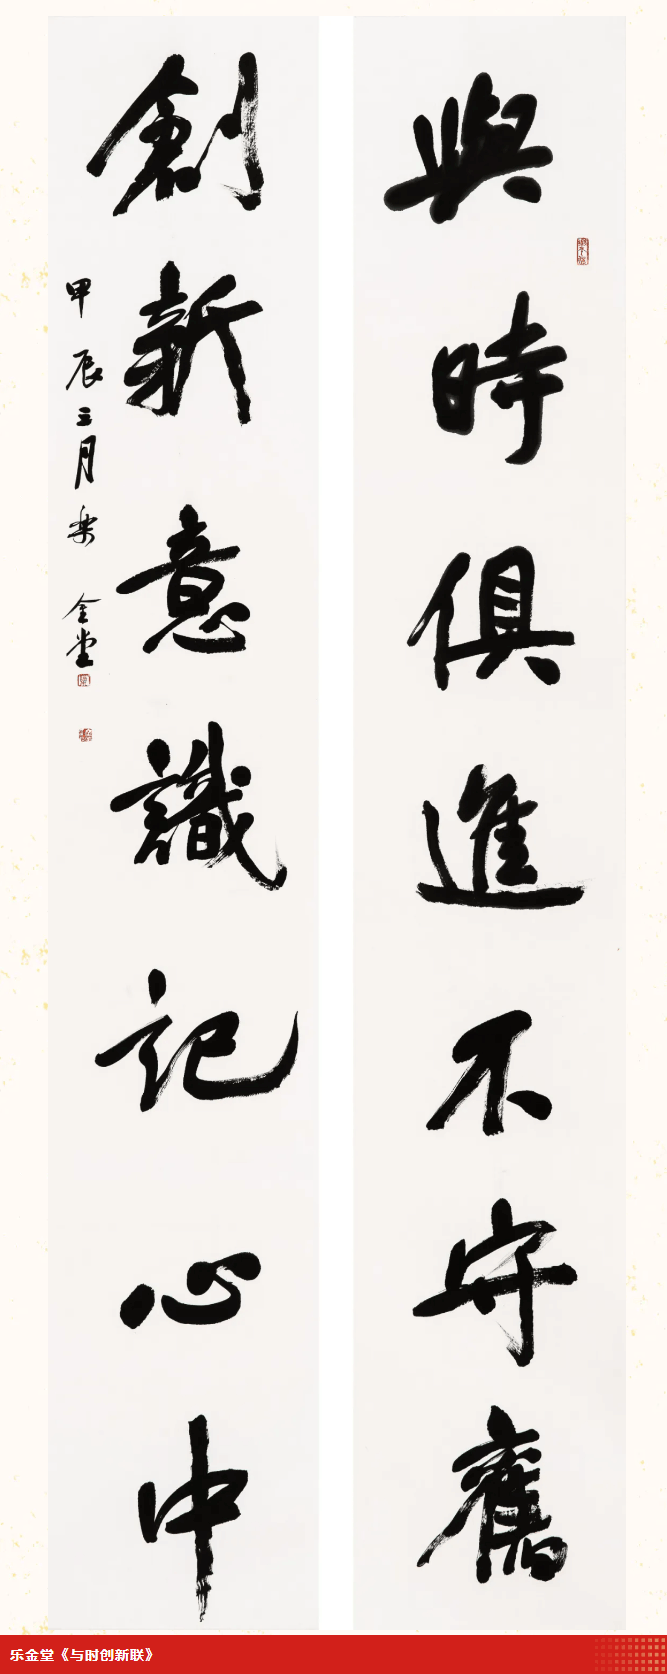 與時俱進不守舊
創新意識記心中
甲辰三月乐金堂
乐金堂《与时创新联》